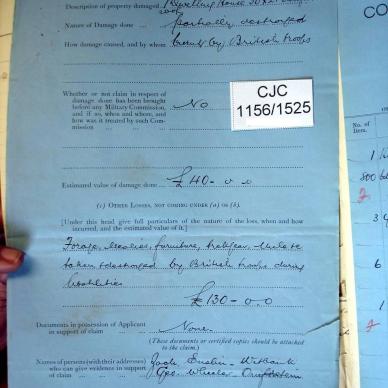 Description of property damaged Dwelling House
roof
Nature of Damage done partially destroyed
How damage caused, and by whom burnt by British troops
Whether or not claim in respect of
damage done has been brought
before any Military Commission,
and if so, when and where, and
how was it treated by such Com-
mission No
CJC
1156/1525
Estimated value of damage done £40-0-0
(c) OTHER LOSSES, NOT COMING UNDER (a) OR (b).
[Under this head give full particulars of the nature of the loss, when and how
incurred, and the estimated value of it.]
Forage, Mealies, furniture, trekgear
taken & destroyed by British troops during
hostilities
£130-0-0
Documents in possession of Applicant
in support of claim None
(These documents or certified copies should be attached
to the claim.)
Names of persons (with their addresses)
who can give evidence in support
of claim
Jack Enslin - Witbank
Geo. Wheeler
CO
No. of
Item.
1
800
2
3
6
1
2